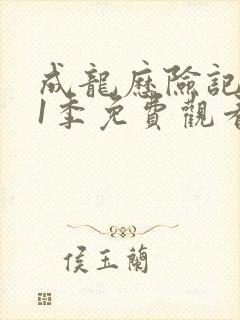 成龍歷險記
1季免費觀看
侯玉蘭